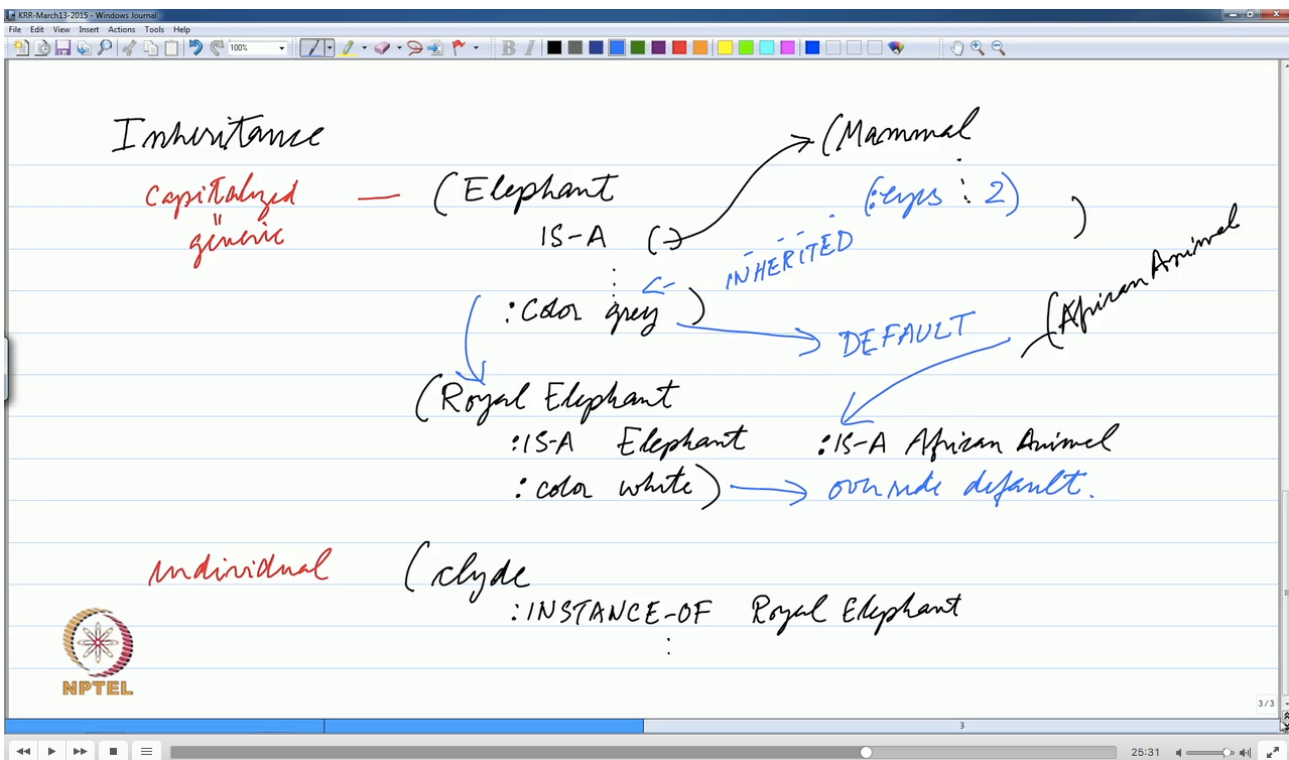 KRR-March13-2015 - Windows Journal
File Edit View Insert Actions Tools Help
100%
Inheritance
(Mammal
Capitalized — (Elephant
(:eyes : 2)
"
generic
IS-A (
)
INHERITED
(African Animal
:Color grey)
DEFAULT
(Royal Elephant
:IS-A Elephant :IS-A African Animal
:color white) override default.
individual (clyde
:INSTANCE-OF Royal Elephant
:
NPTEL
3/3
3
25:31